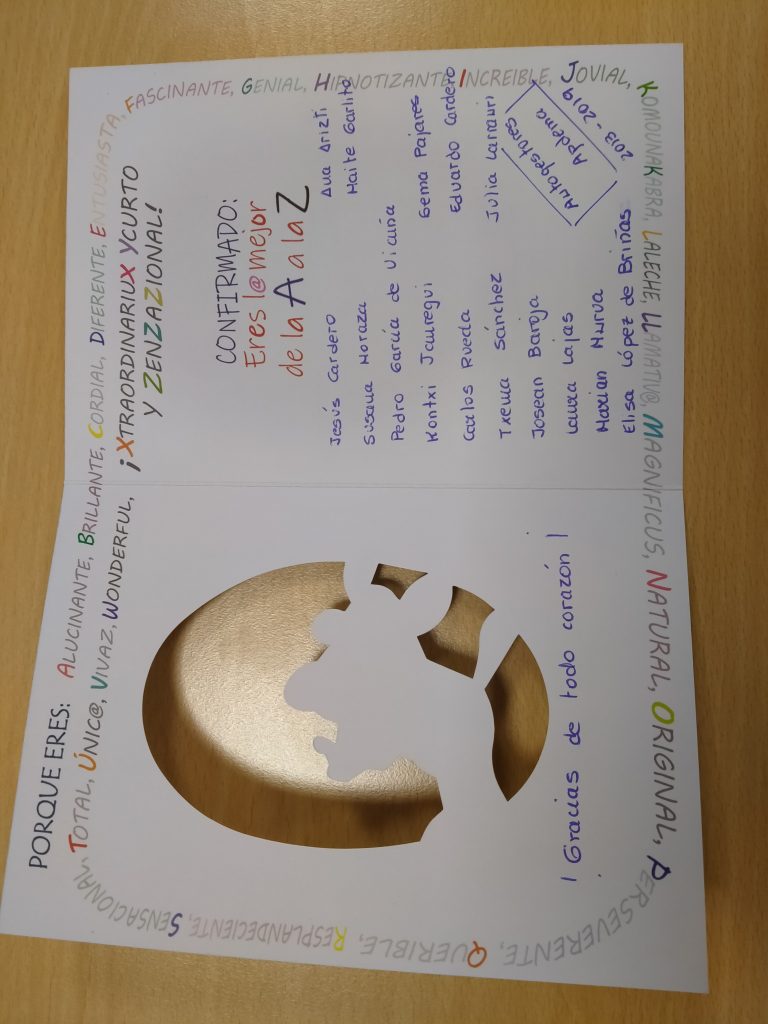 PORQUE ERES: ALUCINANTE, BRILLANTE, CORDIAL, DIFERENTE, ENTUSIASTA, FASCINANTE, GENIAL, HIPNOTIZANTE, INCREIBLE, JOVIAL, KOMOUNAKABRA, LALECHE, LLAMATIV@, MAGNIFICUS, NATURAL, ORIGINAL, PERSEVERENTE, QUERIBLE, RESPLANDECIENTE, SENSACIONAL,
TOTAL, ÚNIC@, VIVAZ, WONDERFUL, ¡XTRAORDINARIUX YCURTO
Y ZENZAZIONAL!
CONFIRMADO:
Eres l@ mejor
de la A a la Z
Jesús Cardero
Susana Noraza
Pedro García de Vicuña
Kontxi Jauregui
Carlos Rueda
Txema Sánchez
Josean Baroja
Laura Lajas
Marian Nurva
Elisa López de Briñas
Ana Arizti
Maite Garlito
Gema Pajares
Eduardo Cardero
Julia Larrauri
Autogestores
Apdema
2013-2019
¡Gracias de todo corazón!